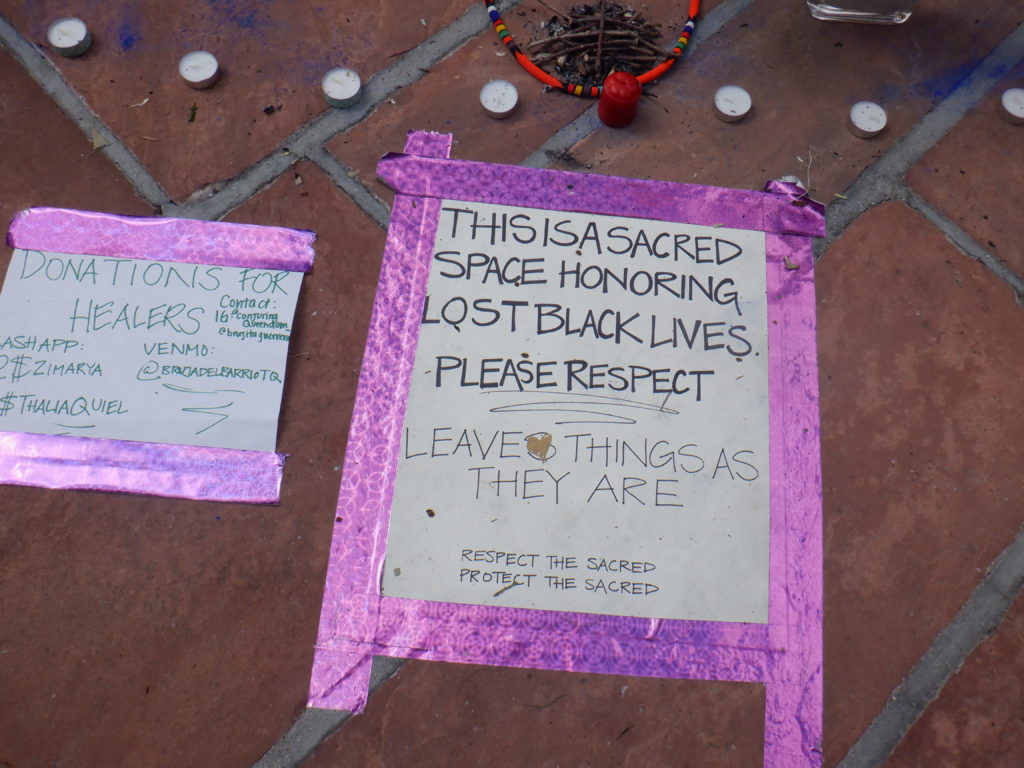 DONATIONS FOR
HEALERS
Contact:
IG: @conjuring
Queendom
@brujitaguerrera
CASHAPP:
$ZIMARYA
$THALIAQUIEL
VENMO:
@BRUJADELBARRIOTQ
THIS IS A SACRED
SPACE HONORING
LOST BLACK LIVES.
PLEASE RESPECT
LEAVE THINGS AS
THEY ARE
RESPECT THE SACRED
PROTECT THE SACRED